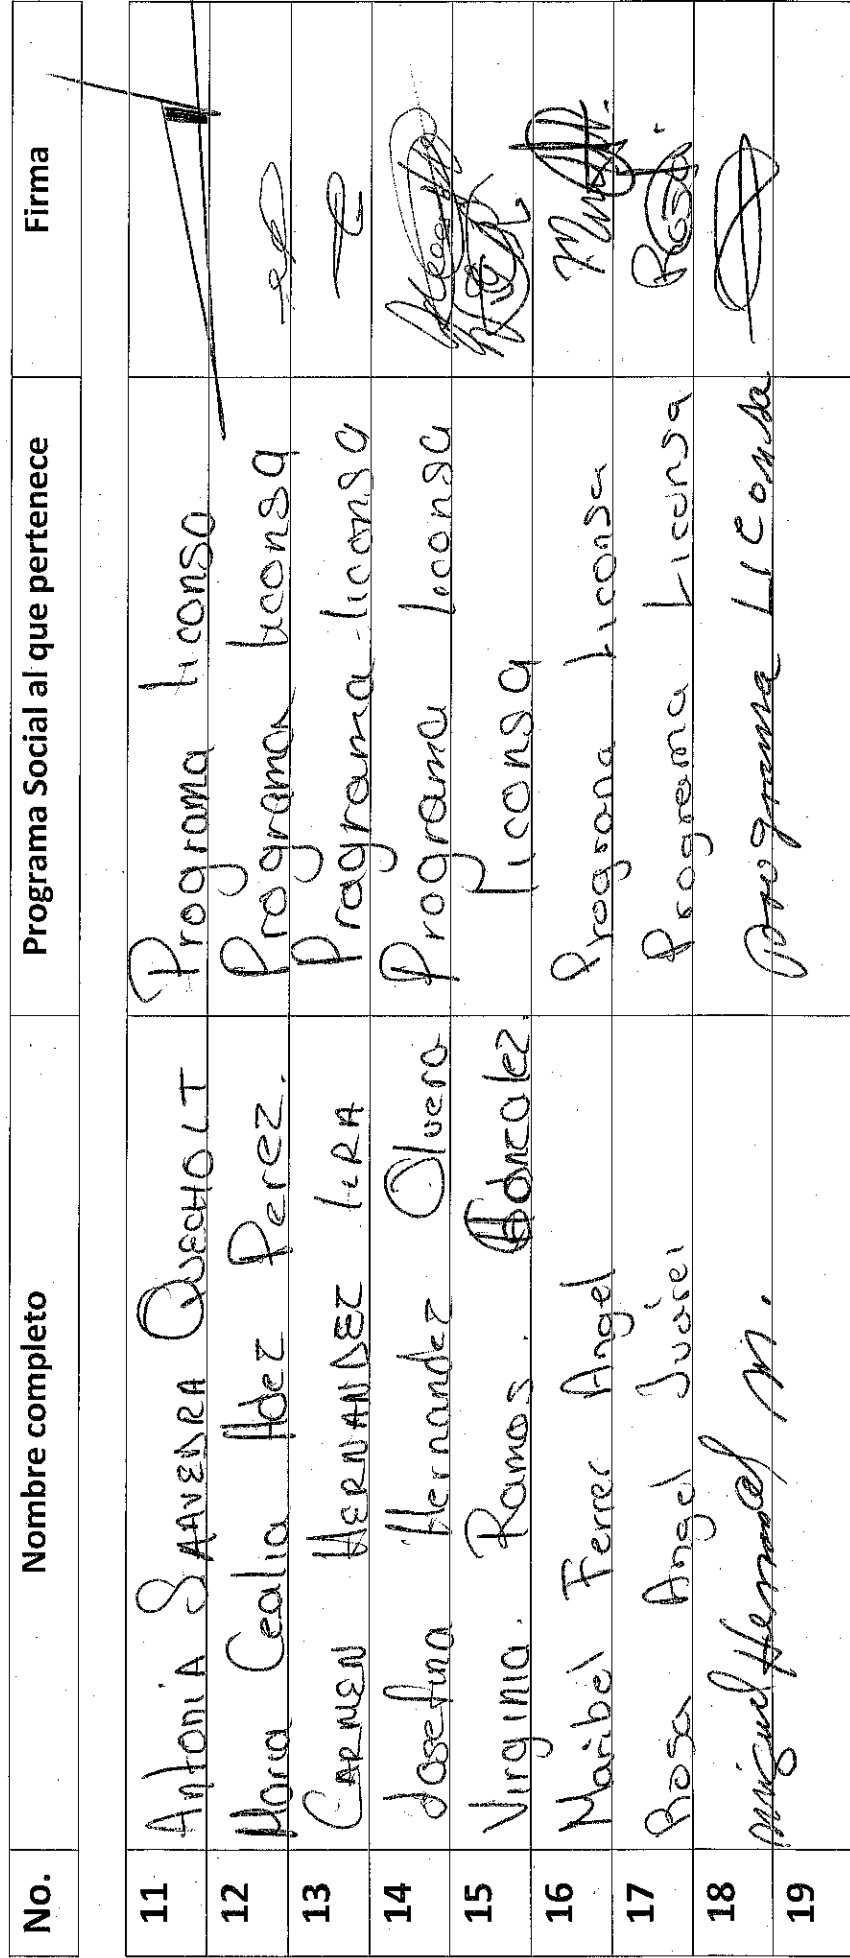 No. Nombre completo Programa Social al que pertenece Firma
11 Antonia SAAVEDRA QUECHOLT Programa Liconsa
12 Maria Cealia Hdez Perez. Programa Liconsa
13 CARMEN HERNANDEZ LIRA Programa liconsa
14 Josefina Hernandez Olvera Programa Liconsa
15 Virginia. Ramos. Gonzalez Liconsa
16 Maribel Ferrer Angel Programa Liconsa
17 Rosa Angel Juárez Programa Liconsa Rosa.
18 Miguel Hernandez M. programa LiConsa
19